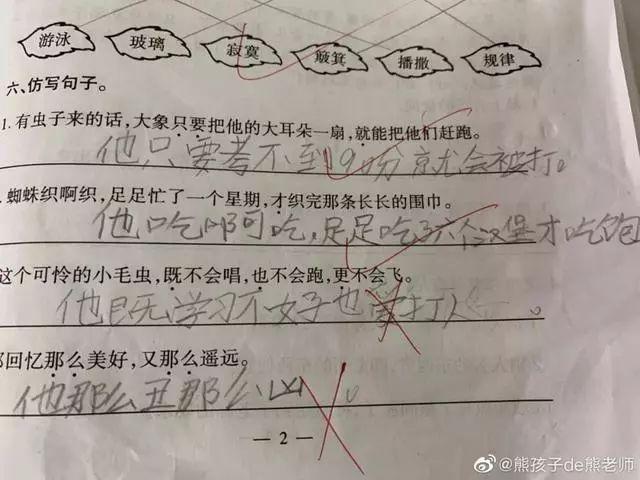 游泳 玻璃 寂寞 簸箕 播撒 规律
六、仿写句子。
1. 有虫子来的话，大象只要把他的大耳朵一扇，就能把他们赶跑。
他只要考不到90份就会被打。
. 蜘蛛织啊织，足足忙了一个星期，才织完那条长长的围巾。
他吃啊吃，足足吃了六个汉堡才吃饱
这个可怜的小毛虫，既不会唱，也不会跑，更不会飞。
他既学习不好也 打人 。
回忆那么美好，又那么遥远。
他那么丑那么凶。
— 2 —
@熊孩子de熊老师